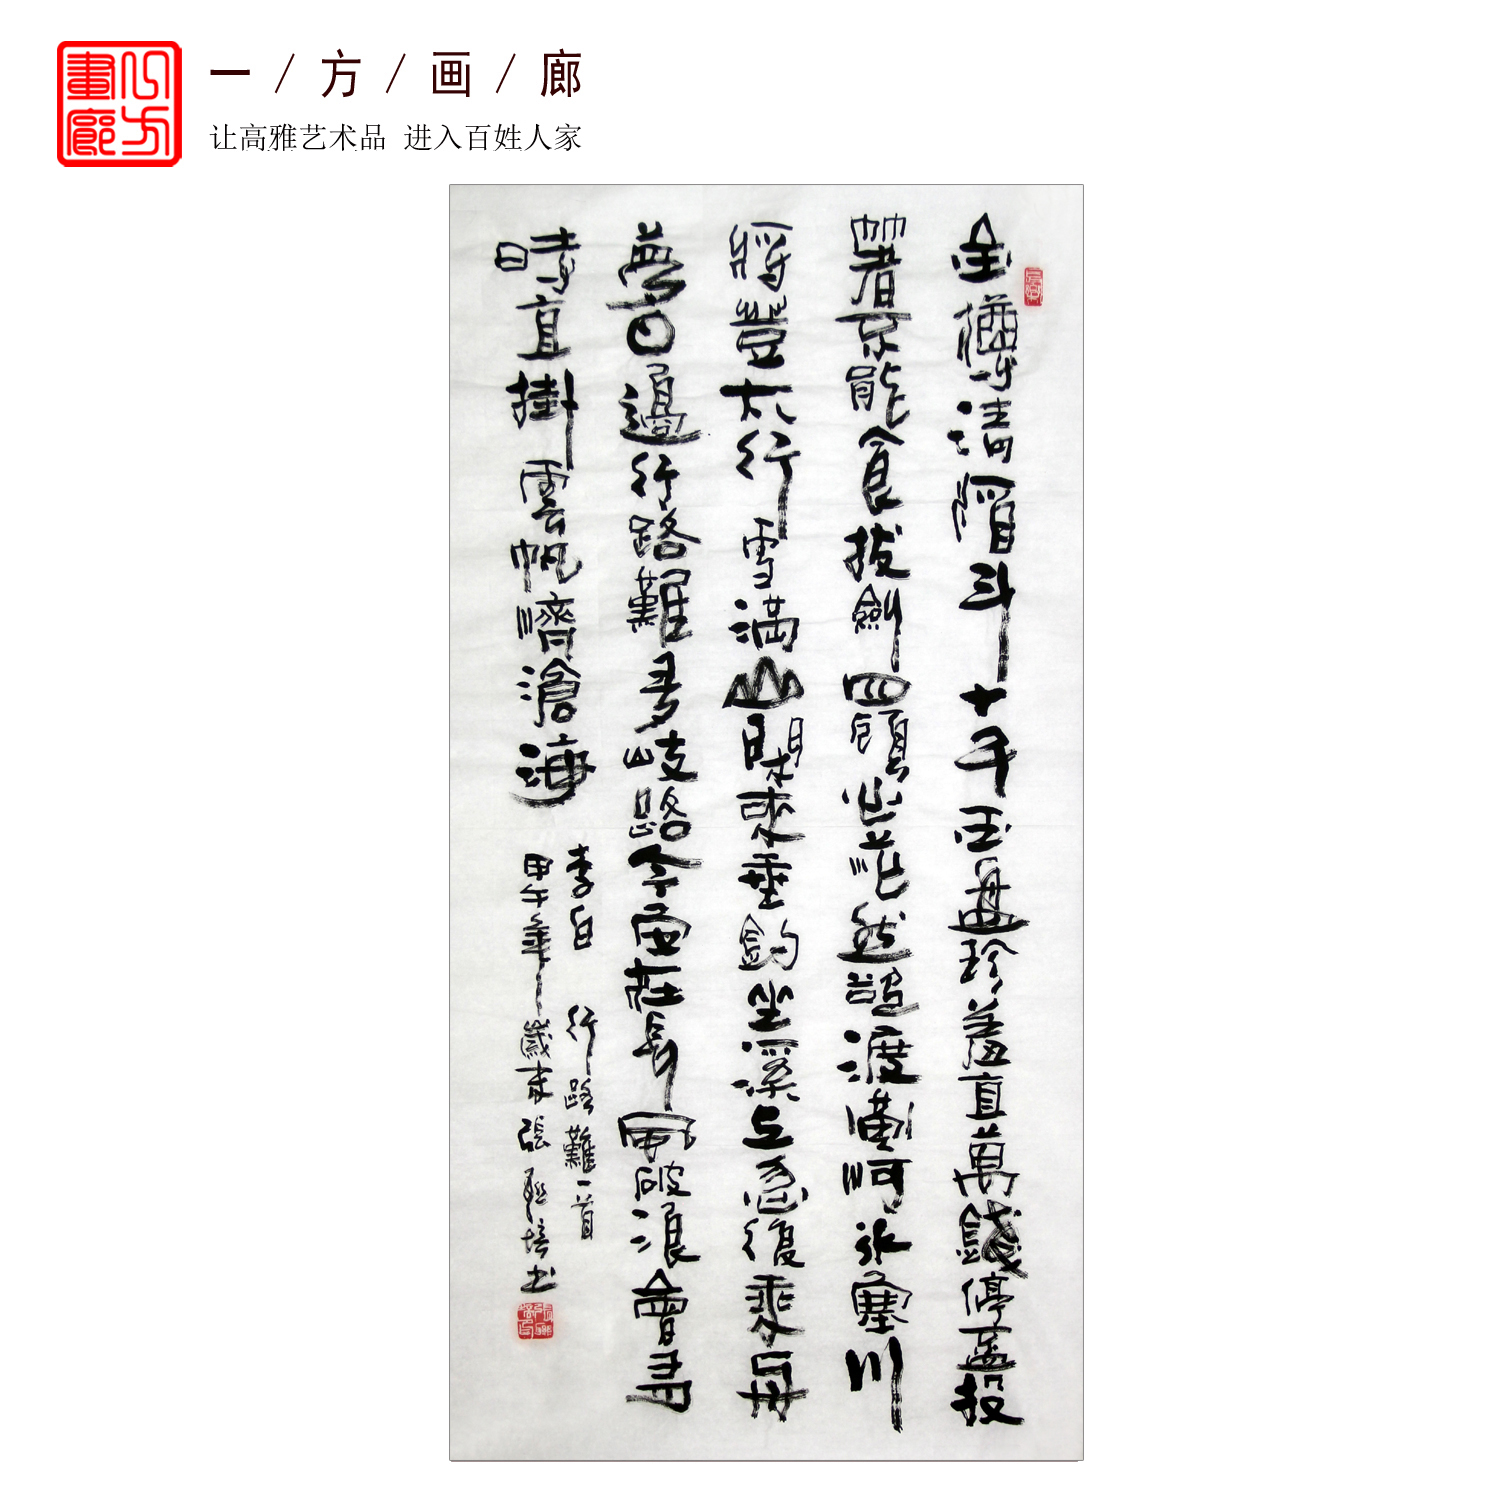 一/方/画/廊
让高雅艺术品 进入百姓人家
金樽清酒斗十千玉盤珍羞直萬錢停盃投
箸不能食拔劍四顧心茫然欲渡黃河冰塞川
將登太行雪滿山閑來垂釣坐溪上忽復乘舟
夢日邊行路難多岐路今安在長風破浪會有
時直掛雲帆濟滄海
李白 行路難一首
甲午年歲末張培书